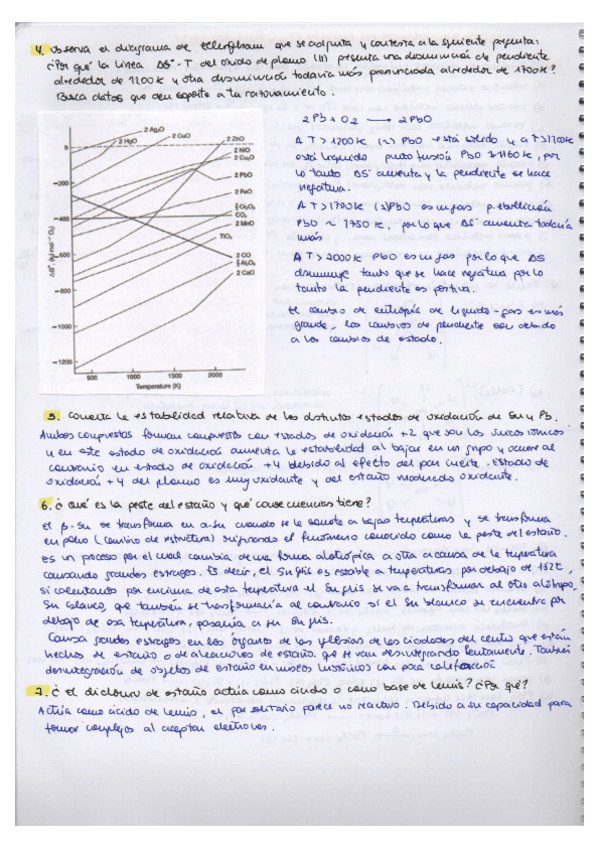 4. Observa el diagrama de Ellingham que se adjunta y contesta a la siguiente pregunta:
¿Por qué la línea ΔG°-T del óxido de plomo (II) presenta una disminución de pendiente
alrededor de 1200K y otra disminución todavía más pronunciada alrededor de 1700K?
Busca datos que den soporte a tu razonamiento.
2 Pb + O2 → 2 PbO
A T>1200K (1) PbO está sólido y a T>1200K
está líquido punto fusión PbO = 1160K, por
lo tanto ΔS aumenta y la pendiente se hace
negativa.
A T>1700K (2) PbO es un gas
PbO ~ 1750K. por lo que ΔS aumenta todavía
más
A T>2000K PbO es un gas por lo que ΔS
disminuye tanto que se hace negativa por lo
tanto la pendiente es positiva.
El cambio de entropía de líquido-gas es más
grande, los cambios de pendiente son debido
a los cambios de estado.
2 Ag2O
2 HgO
2 CuO
2 ZnO
2 NiO
2 Cu2O
2 PbO
2 FeO
2/3 Cr2O3
CO2
2 MnO
TiO2
2 CO
2/3 Al2O3
2 CaO
0
-200
-400
-600
-800
-1000
-1200
ΔG°, (kJ mol-1 O2)
500
1000
1500
2000
Temperature (K)
5. Comenta la estabilidad relativa de los distintos estados de oxidación de Sn y Pb.
Ambos compuestos forman compuestos con estados de oxidación +2 que son los únicos iónicos
y en este estado de oxidación aumenta la estabilidad al bajar en un grupo y ocurre al
contrario en estado de oxidación +4 debido al efecto del par inerte. Estado de
oxidación +4 del plomo es muy oxidante y del estaño moderado oxidante.
6. ¿Qué es la peste del estaño y qué consecuencias tiene?
El β-Sn se transforma en α-Sn cuando se le somete a bajas temperaturas y se transforma
en polvo (cambio de estructura) sufriendo el fenómeno conocido como la peste del estaño.
Es un proceso por el cual cambia de una forma alotrópica a otra a causa de la temperatura
causando grandes estragos. Es decir, el Sn gris es estable a temperaturas por debajo de 13,2°C,
si calentamos por encima de esta temperatura el Sn gris se va a transformar al otro alótropo,
Sn blanco, que también se transformaría al contrario si el Sn blanco se encuentra por
debajo de esa temperatura, pasaría a ser Sn gris.
Causa grandes estragos en los órganos de las iglesias de las ciudades del centro que están
hechos de estaño o de aleaciones de estaño, que se van desintegrando lentamente. También
desintegración de objetos de estaño en museos históricos con poca calefacción
7. ¿El dicloruro de estaño actúa como ácido o como base de Lewis? ¿Por qué?
Actúa como ácido de Lewis, el par solitario parece no reactivo. Debido a su capacidad para
formar complejos al aceptar electrones.